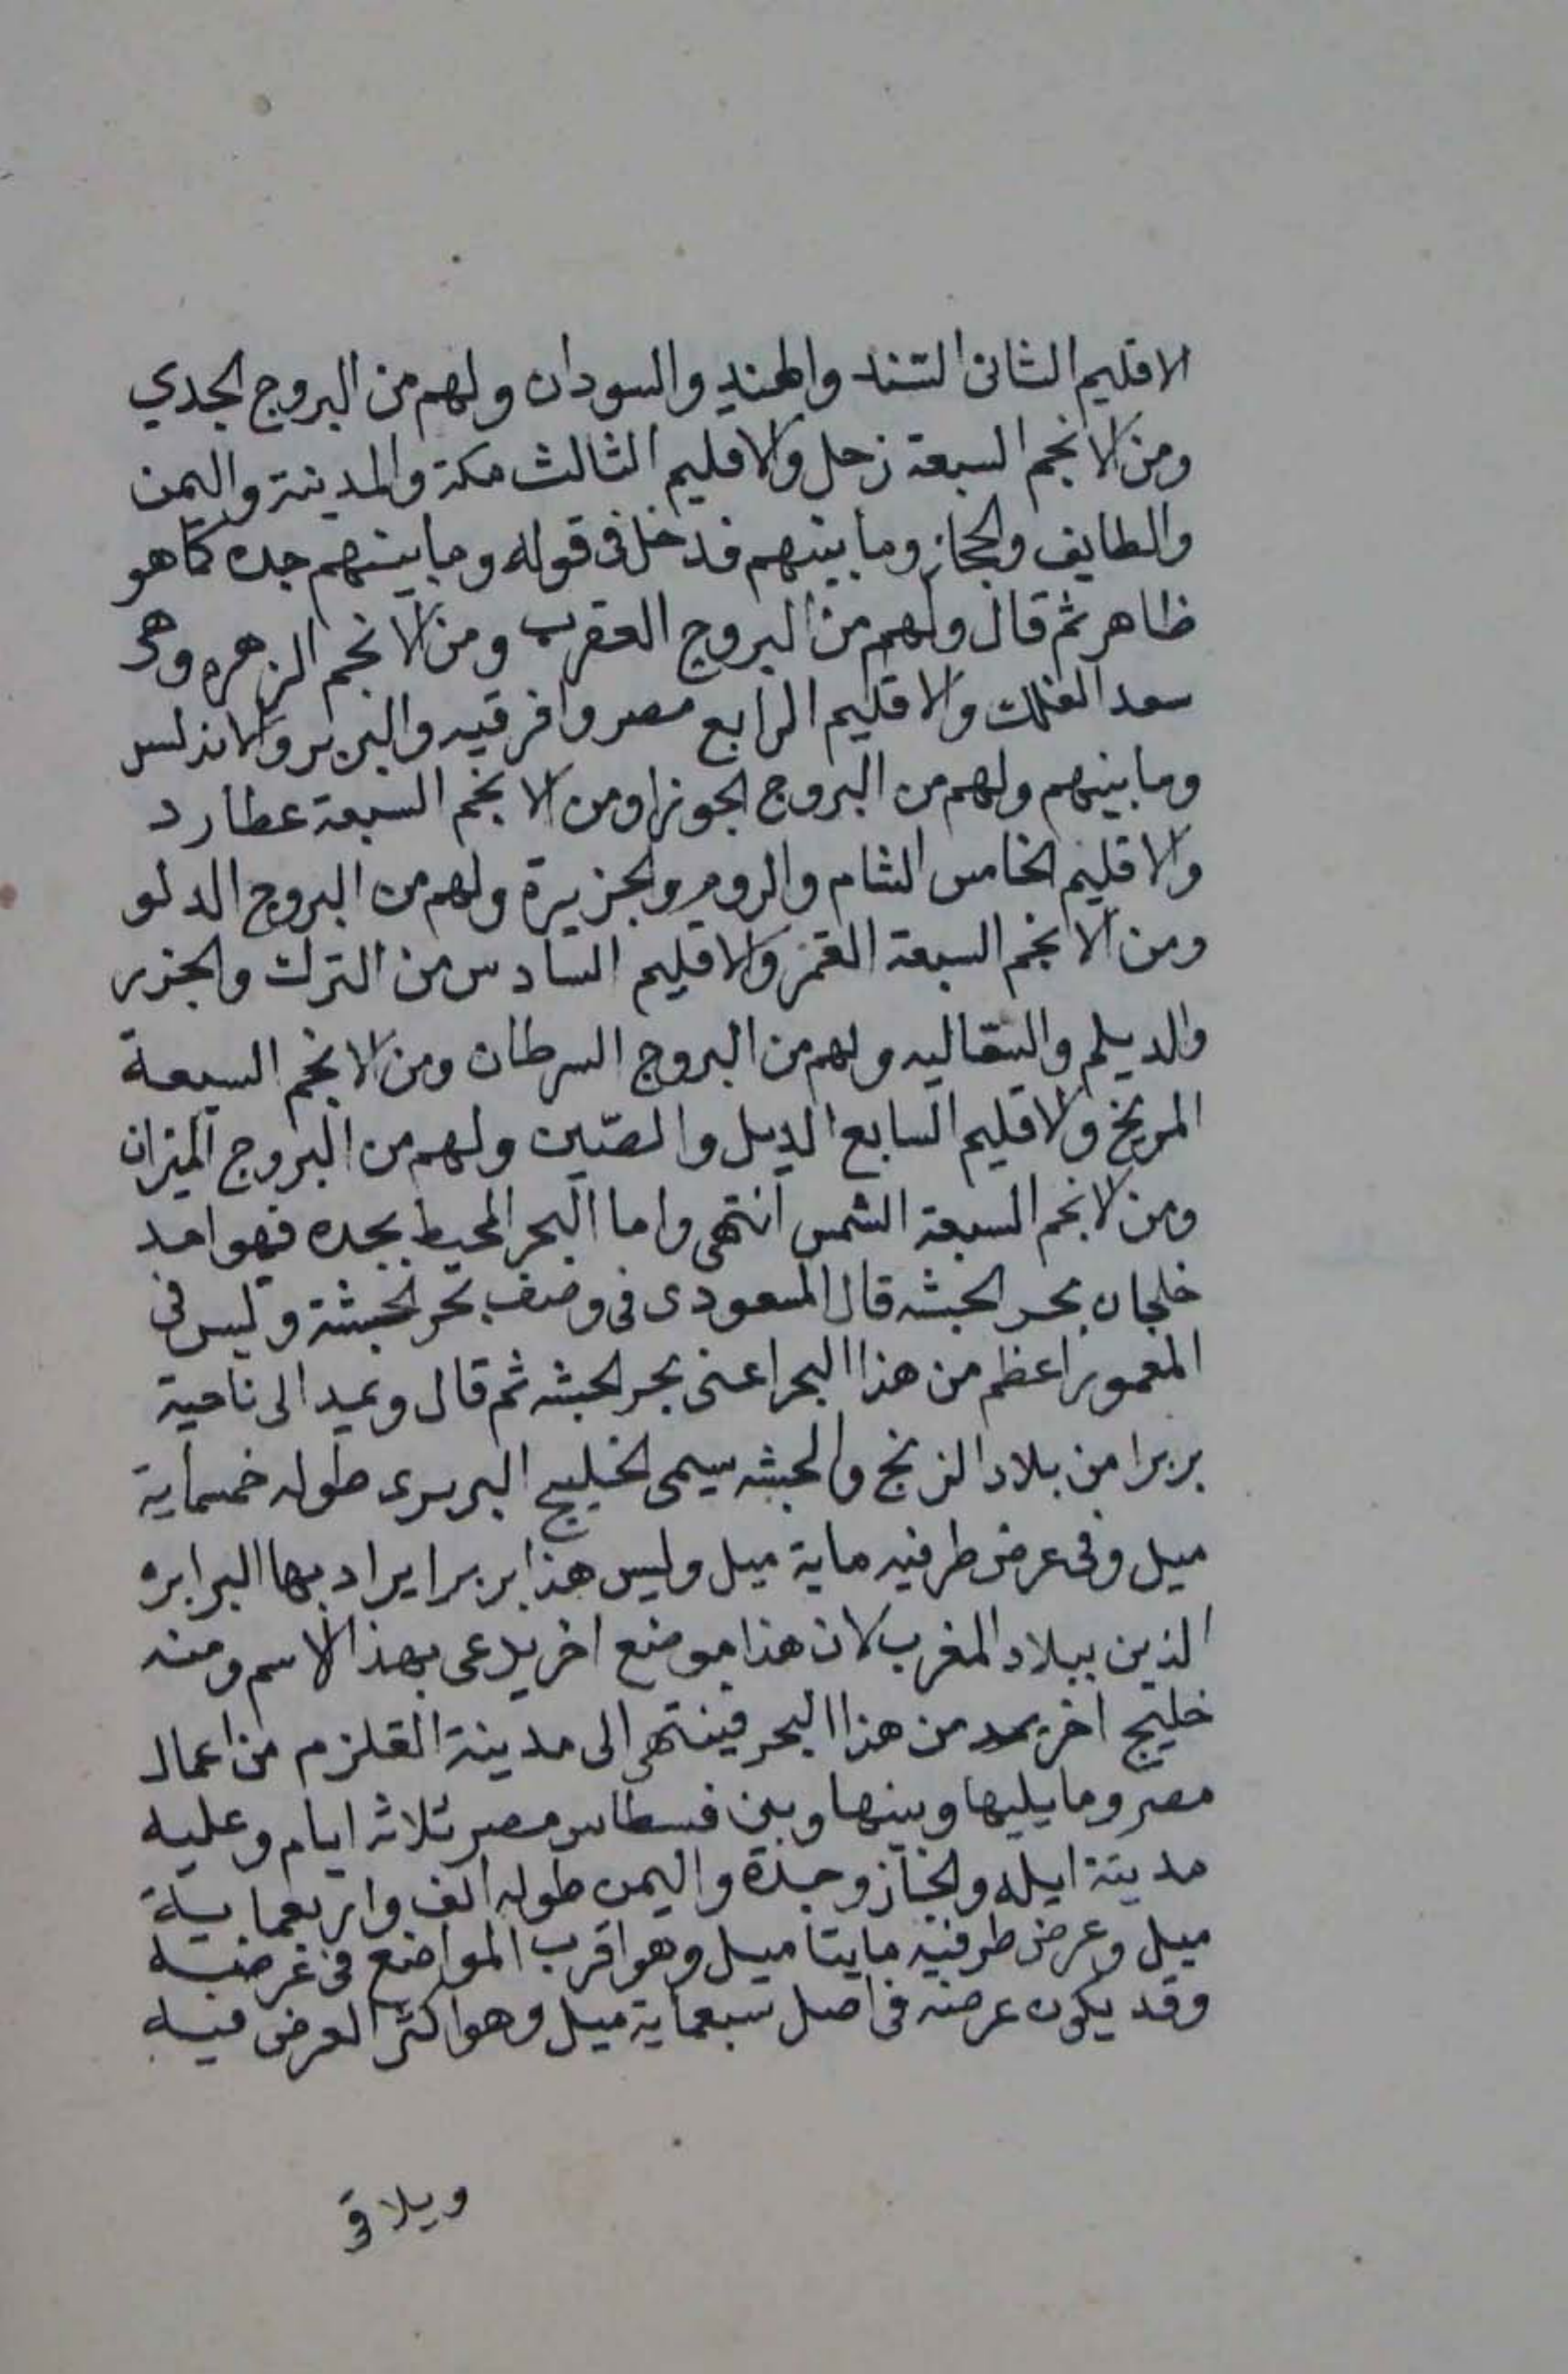 الاقليم الثانى السند والهند والسودان ولهم من البروج الجدي
ومن الانجم السبعة زحل والاقليم الثالث مكة والمدينة واليمن
والطايف والحجاز وما بينهم فدخل فى قوله وما بينهم جده كما هو
ظاهر ثم قال ولهم من البروج العقرب ومن الانجم الزهره وهى
سعد الفلك والاقليم الرابع مصر وافرقيه والبربر والاندلس
وما بينهم ولهم من البروج الجوزا ومن الانجم السبعة عطارد
والاقليم الخامس الشام والروم والجزيرة ولهم من البروج الدلو
ومن الانجم السبعة القمر والاقليم السادس من الترك والجزر
والديلم والسقاليه ولهم من البروج السرطان ومن الانجم السبعة
المريخ والاقليم السابع الديل والصّين ولهم من البروج الميزان
ومن الانجم السبعة الشمس انتهى واما البحر المحيط بجده فهو احد
خلجان بحر الحبشه قال المسعودى فى وصف بحر الحبشة وليس فى
المعمور اعظم من هذا البحر اعنى بحر الحبشه ثم قال ويميد الى ناحية
بربرا من بلاد الزنج والحبشه سيمى الخليج البربرى طوله خمسماية
ميل وفى عرض طرفيه ماية ميل وليس هذا بربرا يراد بها البرابره
الذين ببلاد المغرب لان هذا موضع اخر يدعى بهذ الاسم ومنه
خليج اخر يمد من هذا البحر فينتهى الى مدينة القلزم من اعمال
مصر وما يليها وبينها وبين فسطاس مصر ثلاثه ايام وعليه
مدينة ايله والحجاز وجدة واليمن طوله الف واربعماية
ميل وعرض طرفيه مايتا ميل وهو اقرب المواضع فى عرضه
وقد يكون عرضه فى اصل سبعماية ميل وهو اكثر العرض فيه
ويلاقى